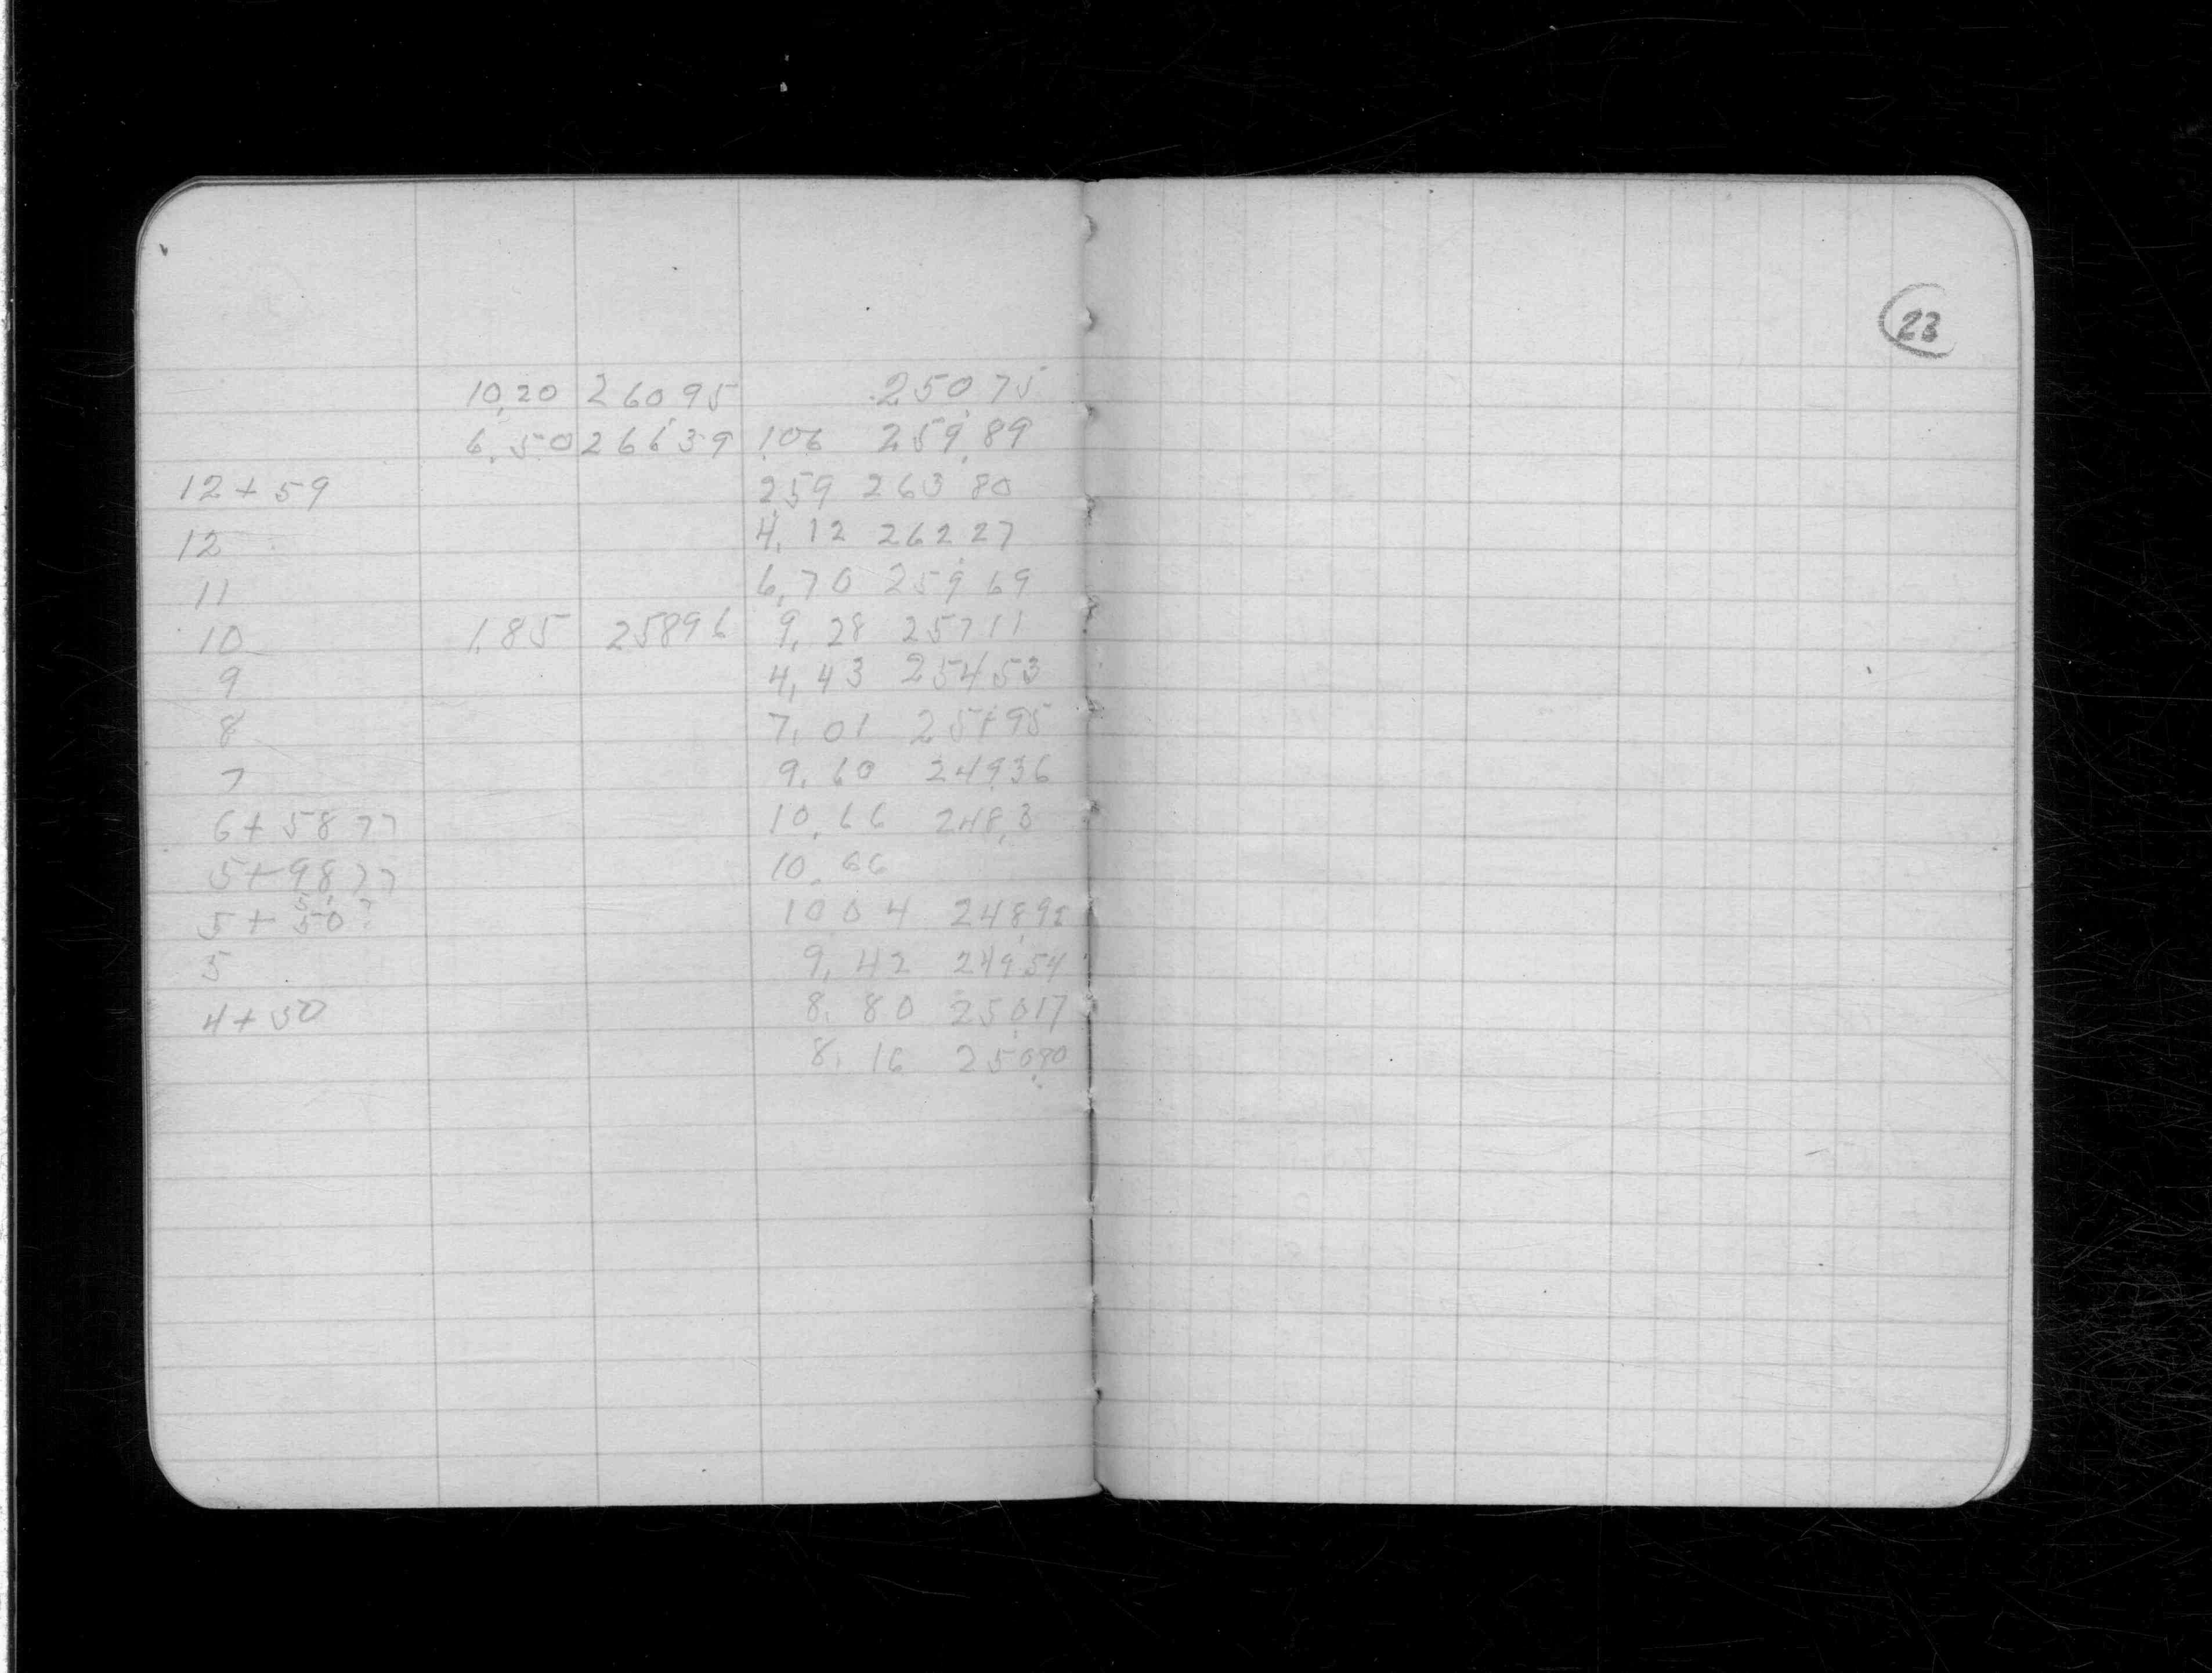 10,20 26095 25075
6,50 26639 106 259,89
12+59 259 263 80
12 4, 12 262 27
11 6,70 259 69
10 1,85 25896 9, 28 25711
9 4, 43 25453
8 7, 01 25195
7 9, 60 24936
6+58 ?? 10,66 248,3
5+98 ?? 10,66
5+50? 10 04 248,92
5 9, 42 249 54
4+50 8, 80 25017
8, 16
23